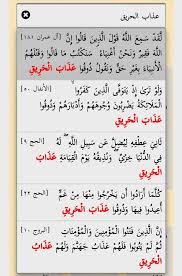 عذاب الحريق
لَّقَدْ سَمِعَ اللَّهُ قَوْلَ الَّذِينَ قَالُوا إِنَّ [آل عمران ١٨١]
اللَّهَ فَقِيرٌ وَنَحْنُ أَغْنِيَاءُ سَنَكْتُبُ مَا قَالُوا وَقَتْلَهُمُ
الْأَنبِيَاءَ بِغَيْرِ حَقٍّ وَنَقُولُ ذُوقُوا عَذَابَ الْحَرِيقِ
وَلَوْ تَرَىٰ إِذْ يَتَوَفَّى الَّذِينَ كَفَرُوا [الأنفال ٥٠]
الْمَلَائِكَةُ يَضْرِبُونَ وُجُوهَهُمْ وَأَدْبَارَهُمْ وَذُوقُوا
عَذَابَ الْحَرِيقِ
ثَانِيَ عِطْفِهِ لِيُضِلَّ عَن سَبِيلِ اللَّهِ لَهُ [الحج ٩]
فِي الدُّنْيَا خِزْيٌ وَنُذِيقُهُ يَوْمَ الْقِيَامَةِ عَذَابَ
الْحَرِيقِ
كُلَّمَا أَرَادُوا أَن يَخْرُجُوا مِنْهَا مِنْ غَمٍّ [الحج ٢٢]
أُعِيدُوا فِيهَا وَذُوقُوا عَذَابَ الْحَرِيقِ
إِنَّ الَّذِينَ فَتَنُوا الْمُؤْمِنِينَ وَالْمُؤْمِنَاتِ [البروج ١٠]
ثُمَّ لَمْ يَتُوبُوا فَلَهُمْ عَذَابُ جَهَنَّمَ وَلَهُمْ عَذَابُ
الْحَرِيقِ